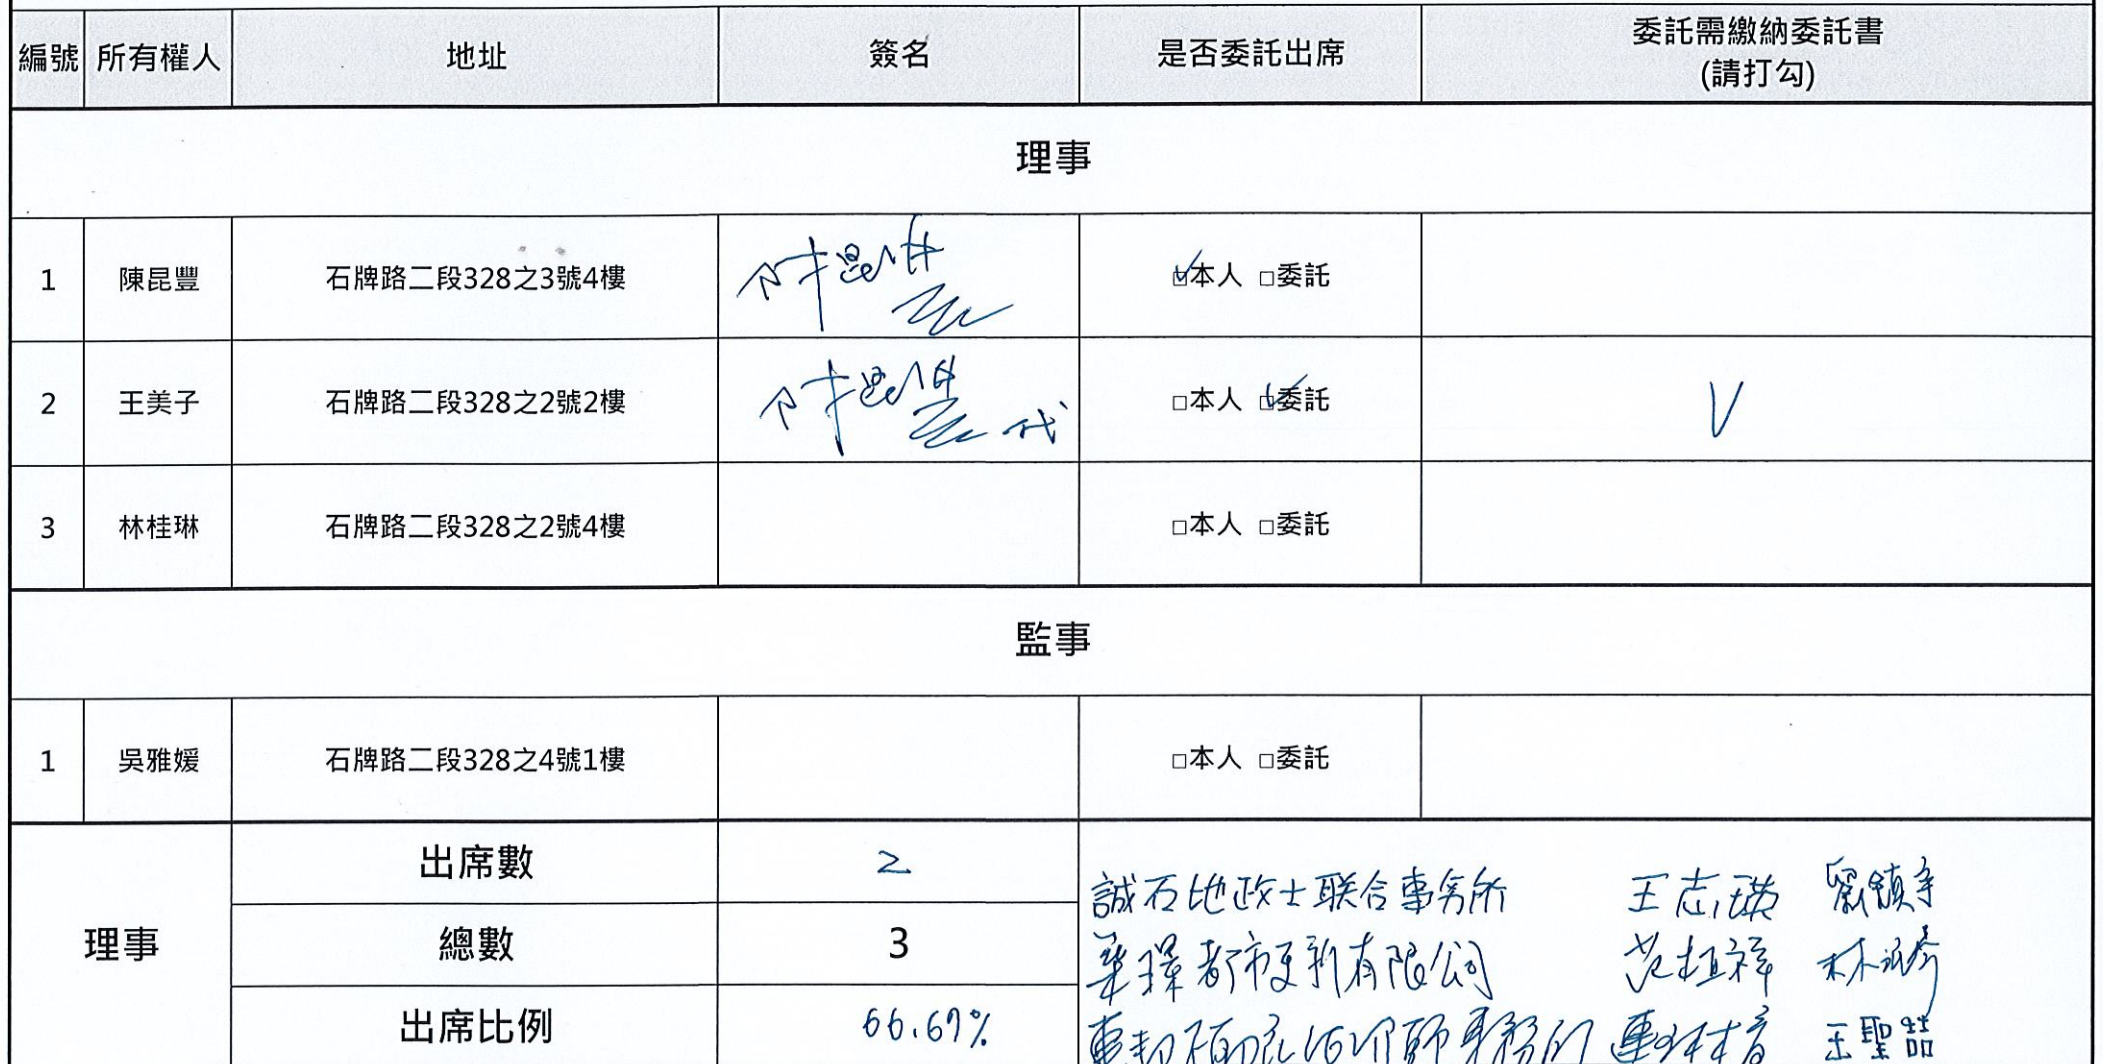 編號 所有權人 地址 簽名 是否委託出席 委託需繳納委託書
(請打勾)
理事
1 陳昆豐 石牌路二段328之3號4樓 陳昆豐 ☑本人 □委託
2 王美子 石牌路二段328之2號2樓 陳昆豐代 □本人 ☑委託 V
3 林桂琳 石牌路二段328之2號4樓 □本人 □委託
監事
1 吳雅媛 石牌路二段328之4號1樓 □本人 □委託
理事
出席數 2
總數 3
出席比例 66.67%
誠石地政士联合事务所 王志瑛
都市更新有限公司 林
事務所 王聖喆